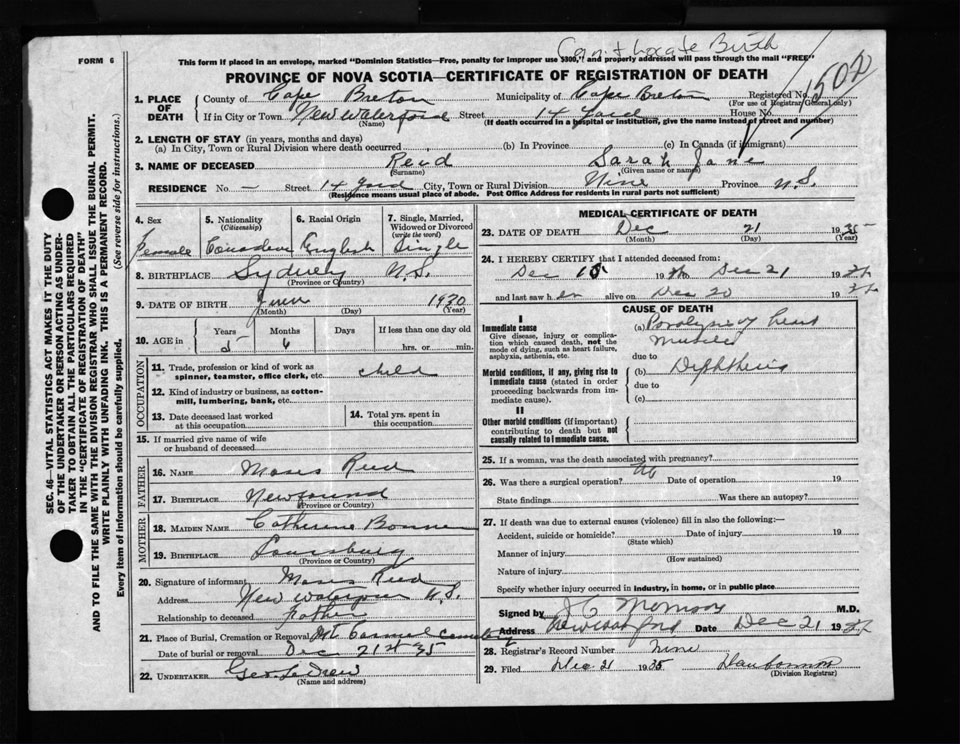 Can't locate Birth
FORM 6
This form if placed in an envelope, marked "Dominion Statistics—Free, penalty for improper use $300," and properly addressed will pass through the mail "FREE"
PROVINCE OF NOVA SCOTIA—CERTIFICATE OF REGISTRATION OF DEATH
1. PLACE OF DEATH
County of Cape Breton Municipality of Cape Breton Registered No.
(For use of Registrar General only)
If in City or Town New Waterford Street 14 Yard House No.
(Name) (If death occurred in a hospital or institution, give the name instead of street and number)
2. LENGTH OF STAY (in years, months and days)
(a) In City, Town or Rural Division where death occurred (b) In Province (c) In Canada (if immigrant)
3. NAME OF DECEASED Reid Sarah Jane
(Surname) (Given name or names)
RESIDENCE No. — Street 14 Yard City, Town or Rural Division Province N.S.
(Residence means usual place of abode. Post Office Address for residents in rural parts not sufficient)
4. Sex
Female
5. Nationality
(Citizenship)
Canadian
6. Racial Origin
English
7. Single, Married, Widowed or Divorced
(write the word)
Single
8. BIRTHPLACE Sydney N.S.
(Province or Country)
9. DATE OF BIRTH June 1930
(Month) (Day) (Year)
10. AGE in
Years Months Days If less than one day old
5 6 hrs. or min.
OCCUPATION
11. Trade, profession or kind of work as spinner, teamster, office clerk, etc. child
12. Kind of industry or business, as cotton-mill, lumbering, bank, etc.
13. Date deceased last worked at this occupation
14. Total yrs. spent in this occupation
15. If married give name of wife or husband of deceased
FATHER
16. NAME Moses Reid
17. BIRTHPLACE Newfound
(Province or Country)
MOTHER
18. MAIDEN NAME Catherine
19. BIRTHPLACE Louisburg
(Province or Country)
20. Signature of informant Moses Reid
Address N.S.
Relationship to deceased Father
21. Place of Burial, Cremation or Removal Mt Carmel Cemetery
Date of burial or removal Dec 21st 35
22. UNDERTAKER Geo.
(Name and address)
MEDICAL CERTIFICATE OF DEATH
23. DATE OF DEATH Dec 21 1935
(Month) (Day) (Year)
24. I HEREBY CERTIFY that I attended deceased from:
Dec 19 to Dec 21 19
and last saw h er alive on Dec 20 19
CAUSE OF DEATH
I
Immediate cause
Give disease, injury or complication which caused death, not the mode of dying, such as heart failure, asphyxia, asthenia, etc.
(a) Paralysis of heart
muscles
due to
Morbid conditions, if any, giving rise to immediate cause (stated in order proceeding backwards from immediate cause).
(b) Diphtheria
due to
(c)
II
Other morbid conditions (if important) contributing to death but not causally related to immediate cause.
25. If a woman, was the death associated with pregnancy?
26. Was there a surgical operation? No Date of operation 19
State findings Was there an autopsy?
27. If death was due to external causes (violence) fill in also the following:—
Accident, suicide or homicide? Date of injury 19
(State which)
Manner of injury
(How sustained)
Nature of injury
Specify whether injury occurred in industry, in home, or in public place
Signed by M.D.
Address Date Dec 21 19
28. Registrar's Record Number Nine
29. Filed Dec. 21 1935
(Division Registrar)
SEC. 46—VITAL STATISTICS ACT MAKES IT THE DUTY
OF THE UNDERTAKER OR PERSON ACTING AS UNDER-
TAKER TO OBTAIN ALL THE PARTICULARS REQUIRED
IN THE "CERTIFICATE OF REGISTRATION OF DEATH"
AND TO FILE THE SAME WITH THE DIVISION REGISTRAR WHO SHALL ISSUE THE BURIAL PERMIT.
WRITE PLAINLY WITH UNFADING INK. THIS IS A PERMANENT RECORD.
Every item of information should be carefully supplied. (See reverse side for instructions.)